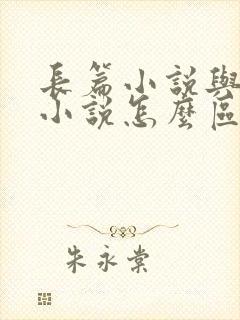 長篇小說與
小說怎麼區
朱永棠